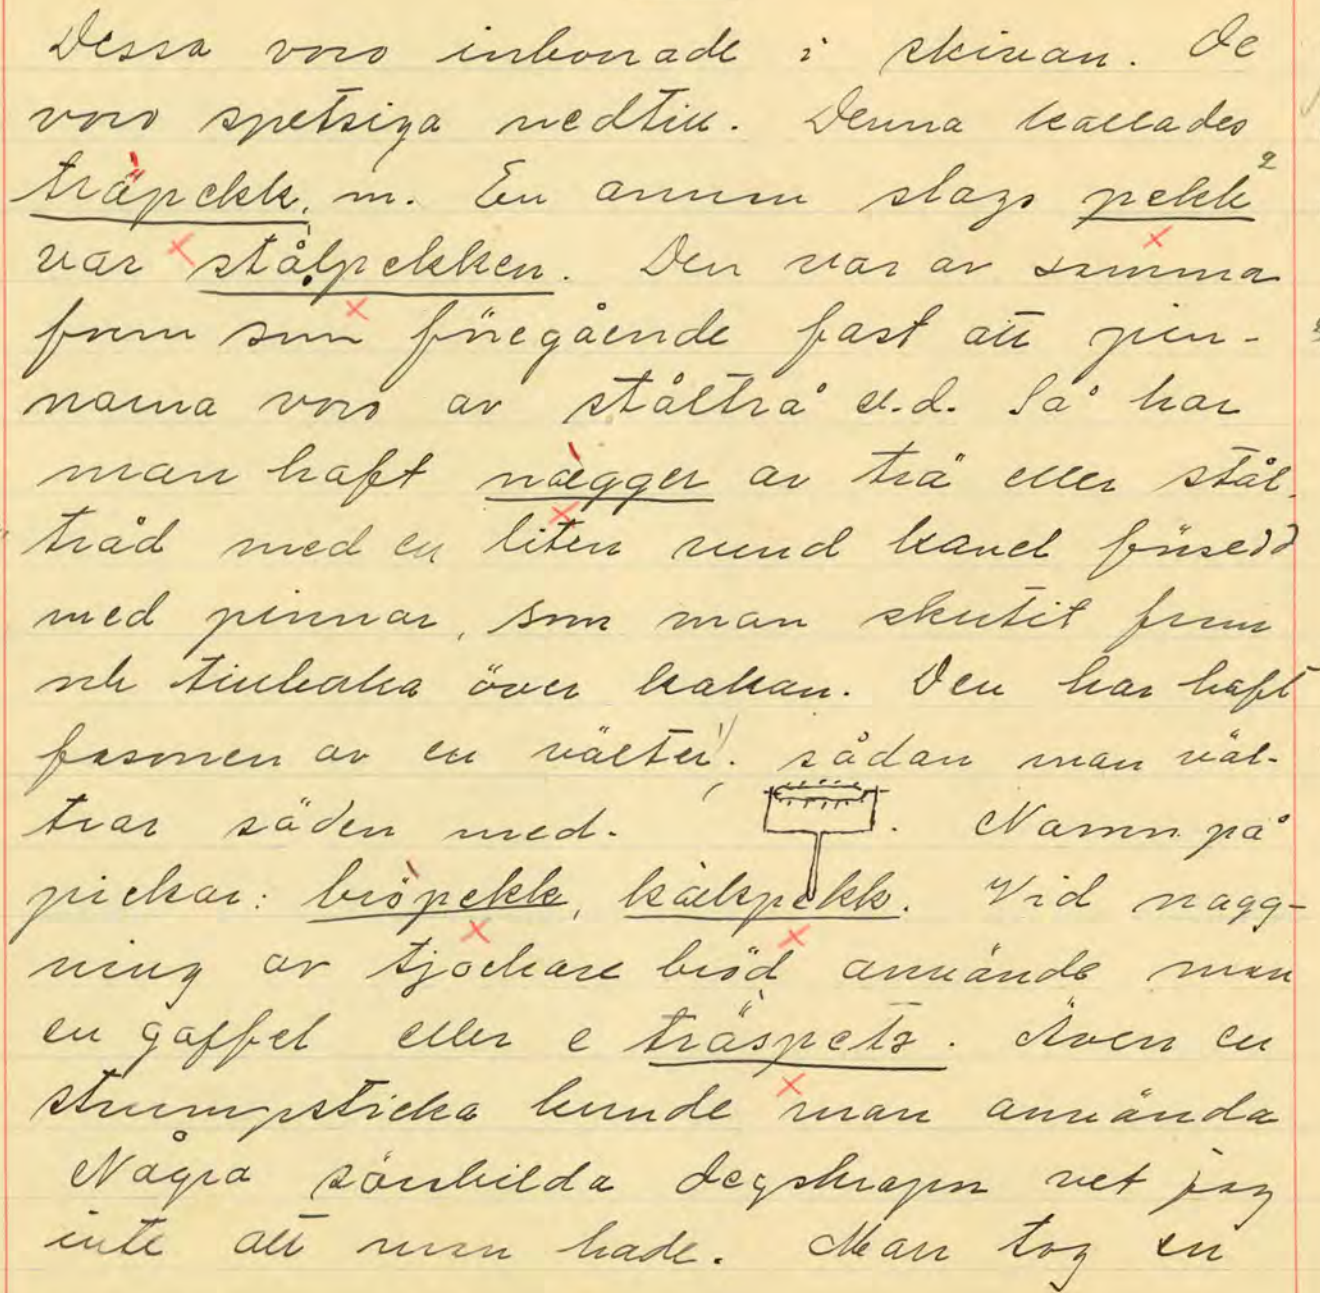 Dessa voro inborrade i skivan. De
voro spetsiga nedtill. Denna kallades
träpekk, m. En annan slags pekk²
var stålpekken. Den var av samma
form som föregående fast att pin-
narna voro av ståltrå e.d. Så har
man haft nægger av trä eller stål-
tråd med en liten rund kavel försedd
med pinnar, som man skutit fram
och tillbaka över kakan. Den har haft
fasonen av en välter, sådan man väl-
trar säden med. Namn på
pickar: bröpekk, kælspekk. Vid nagg-
ning av tjockare bröd använde man
en gaffel eller e träspets. Även en
strumpsticka kunde man använda
Några särskilda degskrapor vet jag
inte att man hade. Man tog en